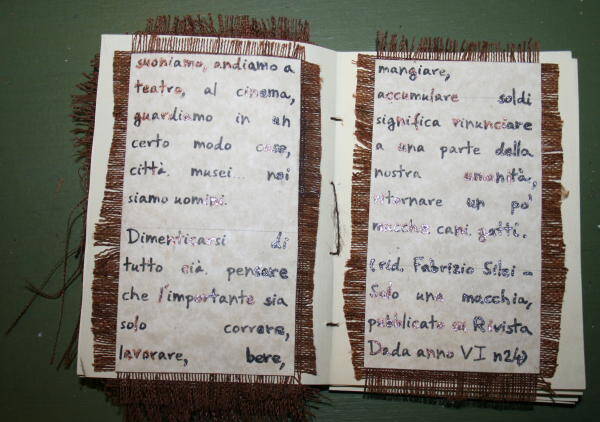 suoniamo, andiamo a
teatro, al cinema,
guardiamo in un
certo modo case,
città. musei... noi
siamo uomini.
Dimenticarsi di
tutto ciò, pensare
che l'importante sia
solo correre,
lavorare, bere,
mangiare,
accumulare soldi
significa rinunciare
a una parte della
nostra umanità,
ritornare un po'
mucche, cani, gatti.
(rid. Fabrizio Silei -
Solo una macchia,
pubblicato su Rivista
Dada anno VI n24)